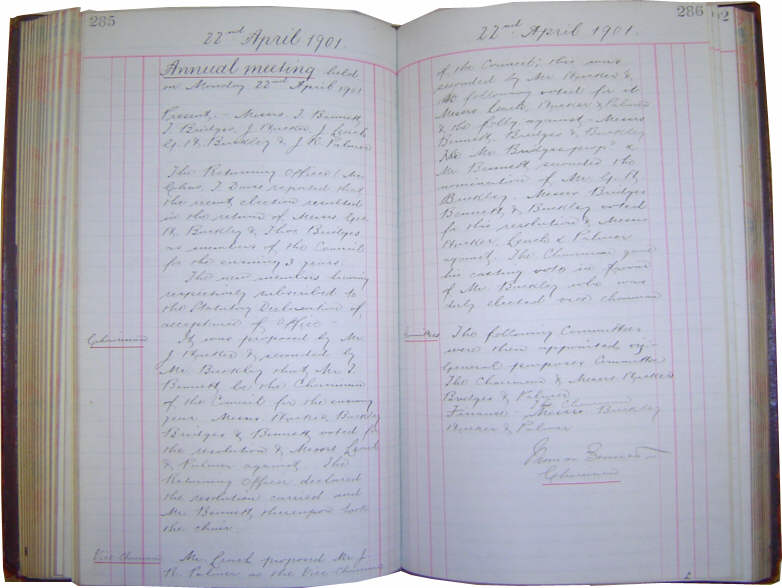 285
22nd April 1901.
Annual meeting held
on Monday 22nd April 1901
Present,- Messrs. T. Bennett,
T. Bridges, J. Hucker, J. Leach
G. H. Buckley & J. R. Palmer
The Returning Officer (Mr
Chas. J. reported that
the recent election resulted
in the return of Messrs Geo.
H. Buckley & Thos Bridges
as members of the Council
for the ensuing 3 years.
The new members having
respectively subscribed to
the Statutory Declaration of
acceptance of office
Chairman
It was proposed by Mr
J. Hucker & seconded by
Mr. Buckley that Mr. T.
Bennett be the Chairman
of the Council for the ensuing
year. Messrs Hucker, Buckley
Bridges & Bennett voted for
the resolution & Messrs Leach
& Palmer against. The
Returning Officer declared
the resolution carried and
Mr Bennett thereupon took
the chair.
Vice Chairman
Mr. Leach proposed Mr J.
R. Palmer as the Vice Chairman
286
22nd April 1901.
of the Council; this was
seconded by Mr Hucker &
the following voted for it
Messrs Leach, Hucker & Palmer
& the follg against - Messrs
Bennett, Bridges & Buckley
Mr Bridges propd &
Mr Bennett, seconded the
nomination of Mr G. H.
Buckley. Messrs Bridges
Bennett, & Buckley voted
for this resolution & Messrs
Hucker, Leach & Palmer
against. The Chairman gave
his casting vote in favour
of Mr Buckley who was
duly elected vice chairman
Committees
The following Committees
were then appointed viz-
General purposes Committee
The Chairman & Messrs Hucker
Bridges & Palmer
Finance - The Chairman
Messrs Buckley
Hucker & Palmer
Bennett
Chairman